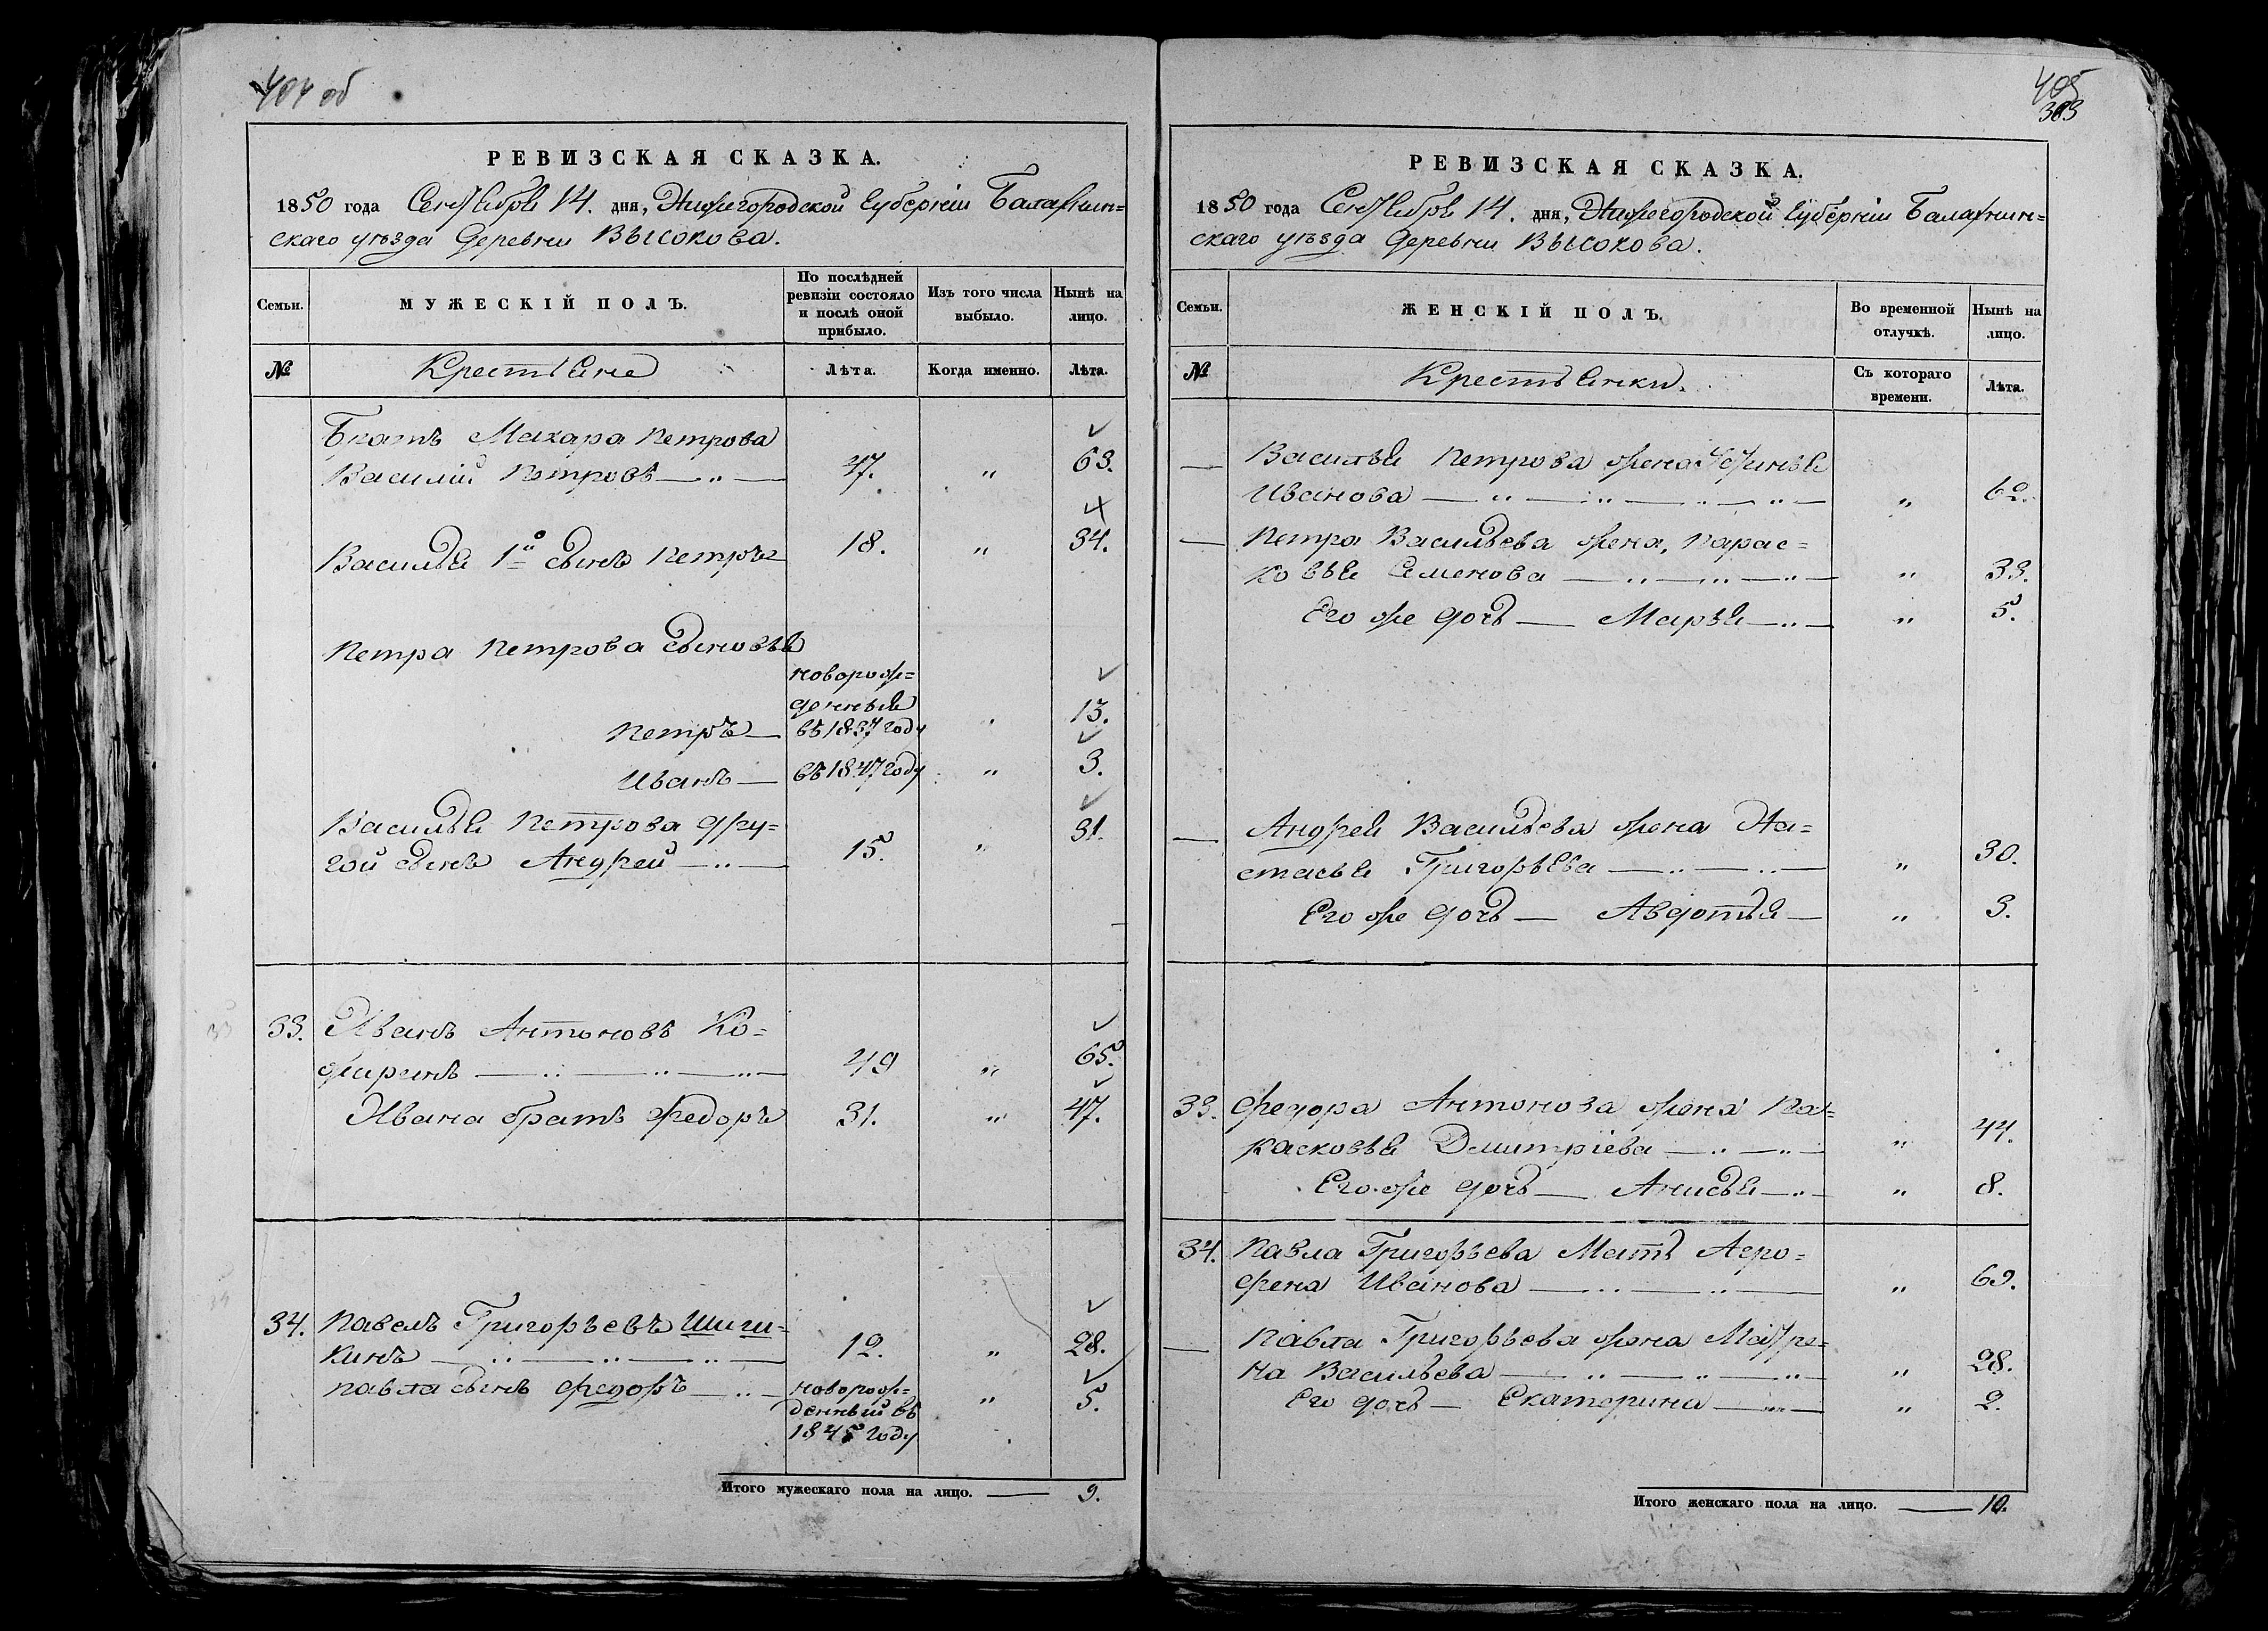 404 об
РЕВИЗСКАЯ СКАЗКА.
1850 года Сентября 14. дня, Нижегородской Губерніи Балахнин=
скаго уѣзда Деревни Высокова.
Семьи. МУЖЕСКІЙ ПОЛЪ. По послѣдней ревизіи состояло и послѣ оной прибыло. Изъ того числа выбыло. Нынѣ на лицо.
№ Крестьяне Лѣта. Когда именно. Лѣта.
Братъ Макара Петрова
Василій Петровъ — „ — 47. „ 63.
Василья 1й сынъ Петръ 18. „ 34.
Петра Петрова сыновья
новорож=
денныя
Петръ — въ 1837 году „ 13.
Иванъ — въ 1847 году „ 3.
Василья Петрова дру=
гой сынъ Андрей — „ — 15. „ 31.
33. Иванъ Антоновъ Ко=
жиринъ — „ — „ — „ — 49 „ 65.
Ивана братъ Федоръ 31. „ 47.
34. Павелъ Григорьевъ Шиши=
кинъ — „ — „ — „ — 12. „ 28.
Павла сынъ Федоръ — „ — новорож= „ 5.
денный въ
1845 году
Итого мужескаго пола на лицо. — 9.
405
383
РЕВИЗСКАЯ СКАЗКА.
1850 года Сентября 14. дня, Нижегородской Губерніи Балахнин=
скаго уѣзда Деревни Высокова.
Семьи. ЖЕНСКІЙ ПОЛЪ. Во временной отлучкѣ. Нынѣ на лицо.
№ Крестьянки. Съ котораго времени. Лѣта.
— Василья Петрова жена
Иванова — „ — „ — „ — „ — „ 62.
— Петра Васильева жена, Парас=
ковья Семенова — „ — „ — „ — „ 33.
Его же дочь — Марья — „ — „ 5.
— Андрея Васильева жена На=
стасья Григорьева — „ — „ — „ 30.
Его же дочь — Авдотья — „ 3.
33. Федора Антонова жена Па=
расковья Дмитріева — „ — „ — „ 44.
Его же дочь — Анисья — „ — „ 8.
34. Павла Григорьева Мать Агро=
фена Иванова — „ — „ — „ 69.
— Павла Григорьева жена Матре=
на Васильева — „ — „ — „ — „ 28.
Его дочь — Екатерина — „ — „ 2.
Итого женскаго пола на лицо. — 10.